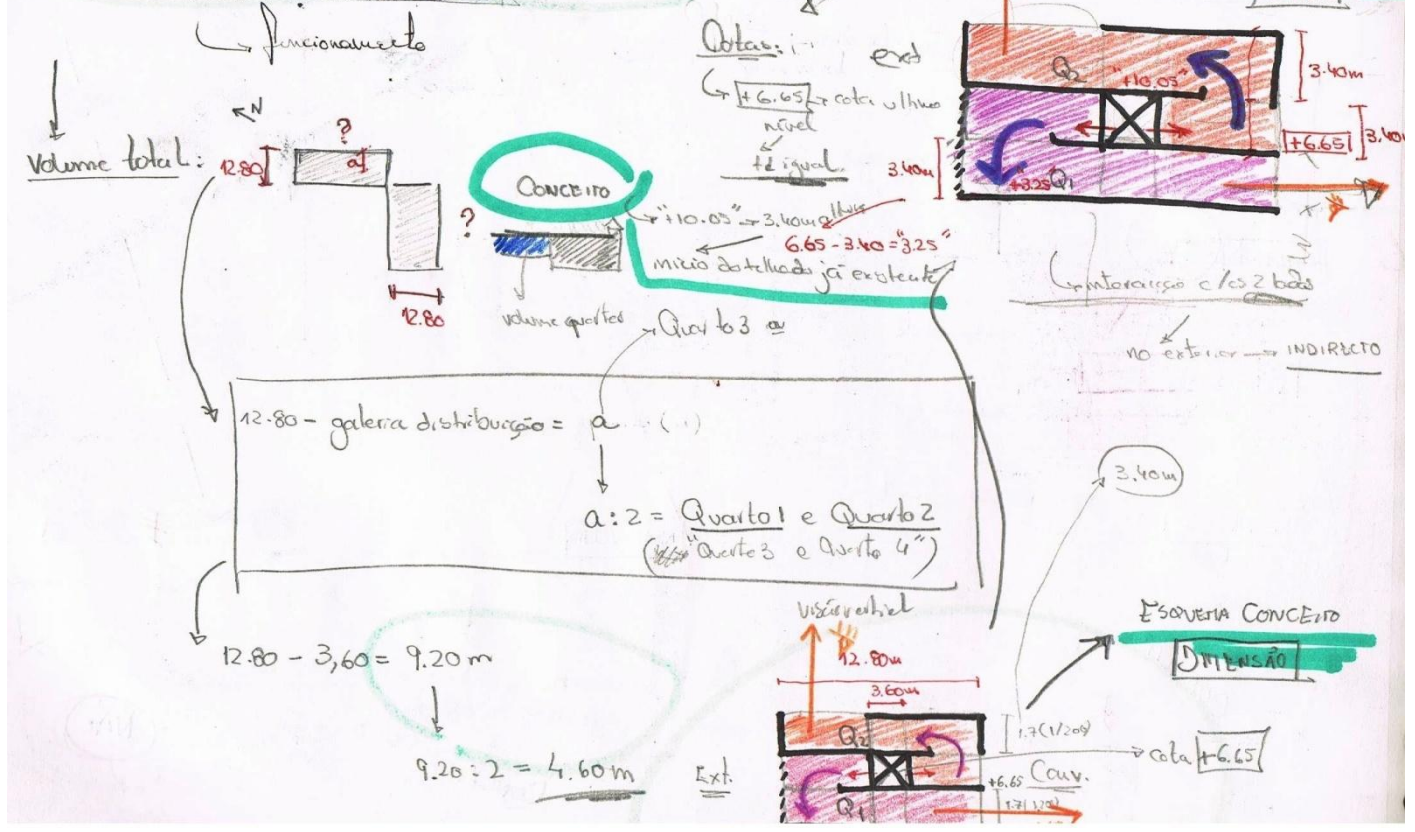 funcionamento
Volume total:
N
?
12.80
a
?
12.80
CONCEITO
volume quartos
Quarto 3
Cotas:
ext
+6.65 cota ultimo
nível
"+10.05" 3.40m
6.65 - 3.40 = "3.25"
início do telhado já existente
3.40m
Q2
"+10.05"
"+3.25" Q1
3.40m
+6.65
interacção c/ os 2 lados
no exterior INDIRECTO
12.80 - galeria distribuição = a
a : 2 = Quarto 1 e Quarto 2
("Quarto 3 e Quarto 4")
12.80 - 3,60 = 9.20 m
9.20 : 2 = 4.60 m
Ext.
12.80m
3.60m
Q2
Q1
3.40m
1.7 (1/200)
cota +6.65
+6.65
ESQUEMA CONCEITO
DIMENSÃO